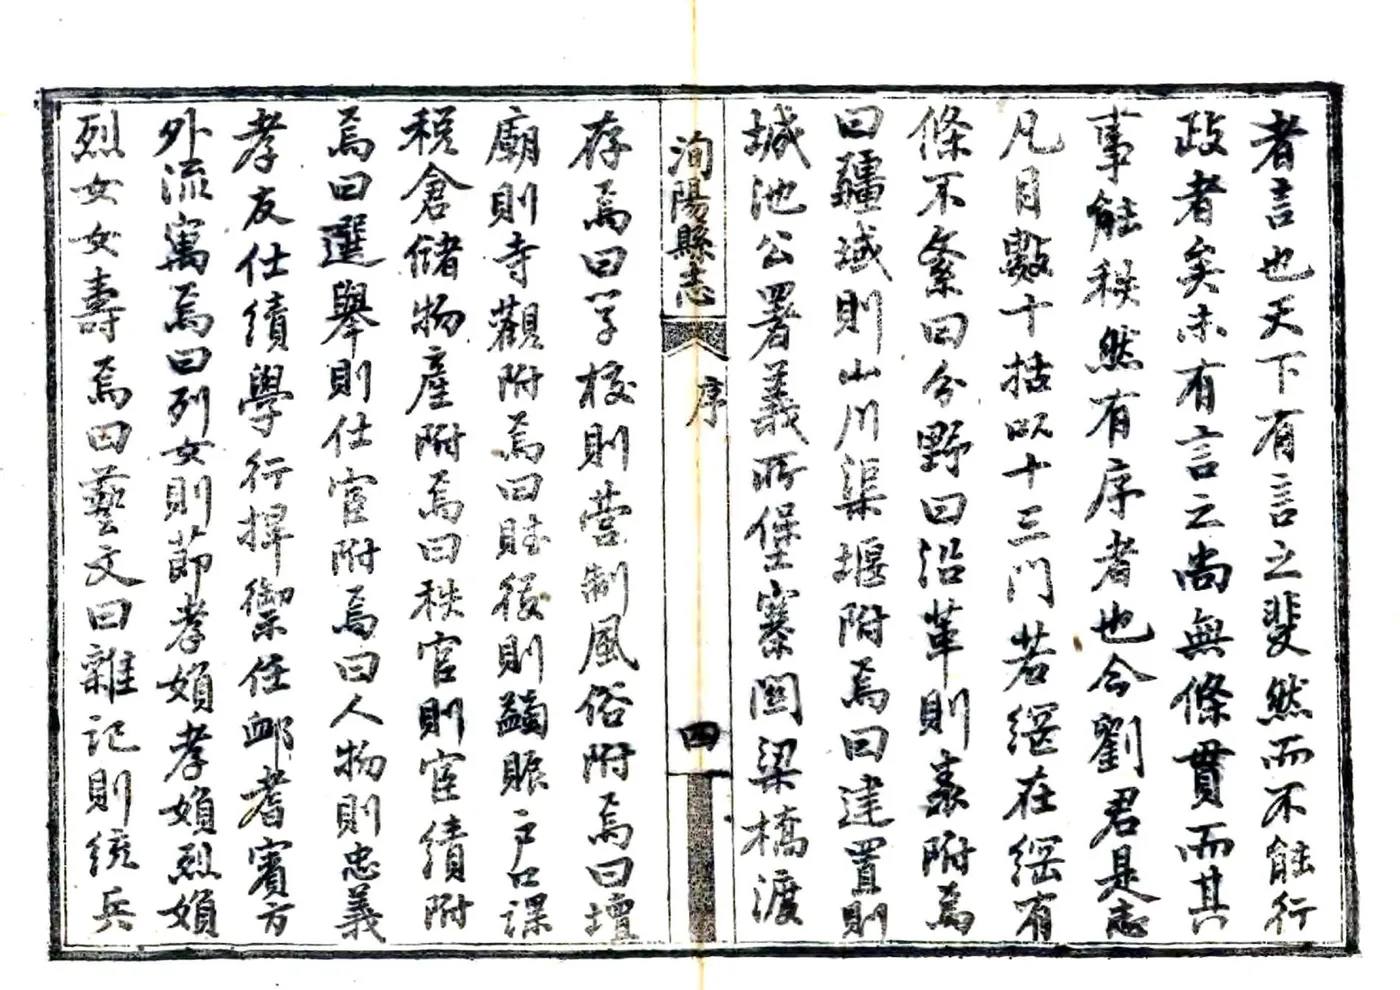 者言也天下有言之斐然而不能行
政者矣未有言之尚無條貫而其
事能秩然有序者也今劉君是志
凡目數十括以十三門若網在綱有
條不紊曰分野曰沿革則表附焉
曰疆域則山川渠堰附焉曰建置則
城池公署義所堡寨関梁橋渡
洵陽縣志
序
四
存焉曰学校則營制風俗附焉曰壇
廟則寺觀附焉曰賦役則蠲賑户口課
税倉儲物產附焉曰秩官則宦績附
焉曰選舉則仕宦附焉曰人物則忠義
孝友仕績學行捍禦任卹耆賓方
外流寓焉曰列女則節孝婦孝婦烈婦
烈女女壽焉曰藝文曰雜记則統兵